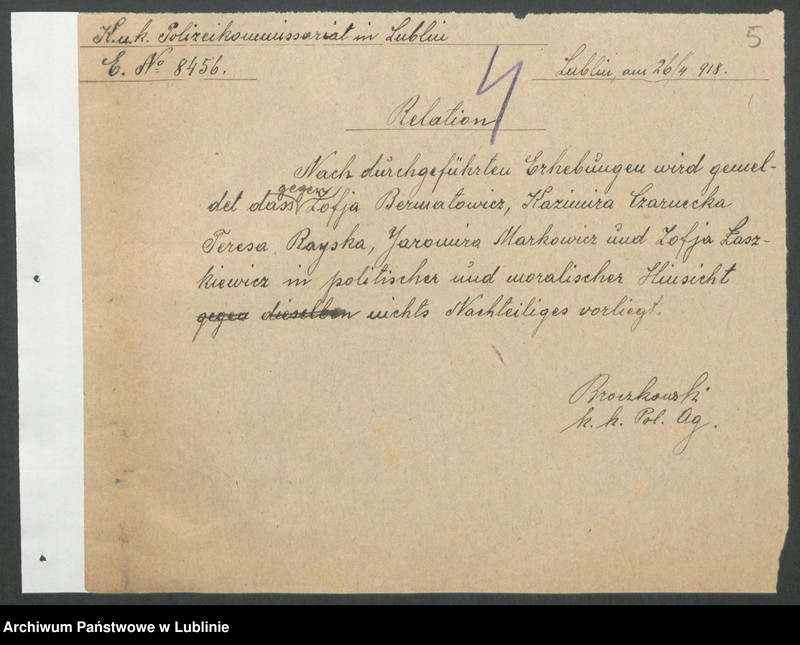 K.u.k. Polizeikommissariat in Lublin
5
E. No 8456.
Lublin, am 26/4 918.
Relation
Nach durchgeführten Erhebungen wird gemel-
det dass gegen Zofja Bermatowicz, Kazimira Czarnecka
Teresa Rayska, Jaromira Markowicz und Zofja Łasz-
kiewicz in politischer und moralischer Hinsicht
gegen dieselben nichts Nachteiliges vorliegt.
Broczkowski
k. k. Pol. Ag.
Archiwum Państwowe w Lublinie